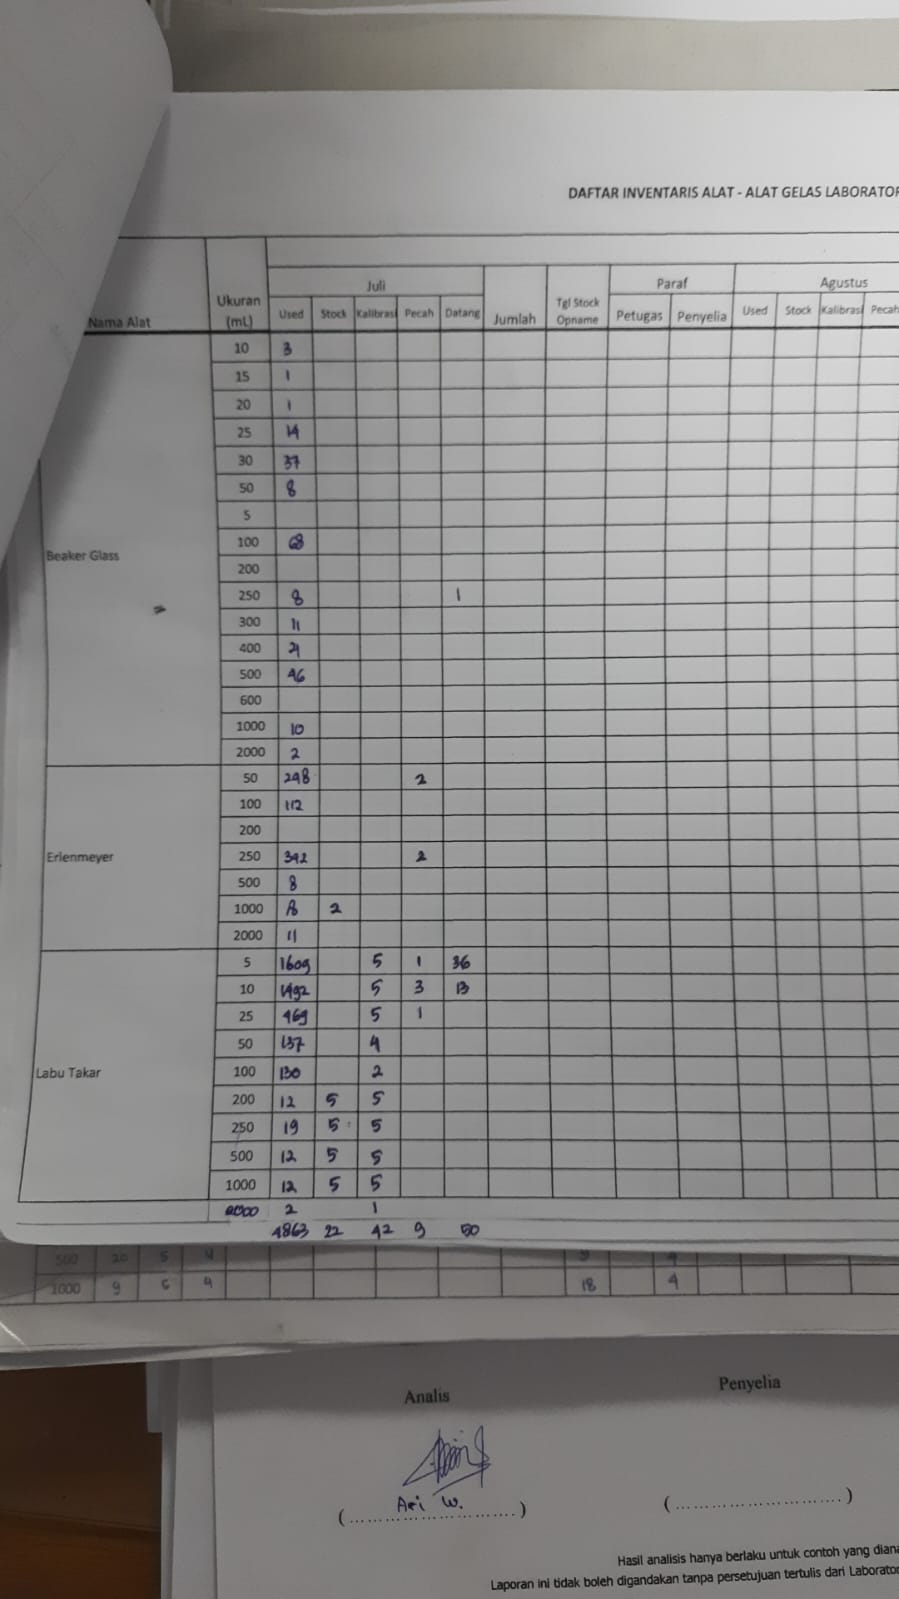 DAFTAR INVENTARIS ALAT - ALAT GELAS LABORATOR
Juli Paraf Agustus
Nama Alat Ukuran (mL) Used Stock Kalibrasi Pecah Datang Jumlah Tgl Stock Opname Petugas Penyelia Used Stock Kalibrasi Pecah
Beaker Glass
10 3
15 1
20 1
25 14
30 37
50 8
5
100 68
200
250 8 1
300 11
400 21
500 46
600
1000 10
2000 2
Erlenmeyer
50 298 2
100 112
200
250 342 2
500 8
1000 2
2000 11
Labu Takar
5 1609 5 1 36
10 1492 5 3 13
25 469 5 1
50 137 4
100 130 2
200 12 5 5
250 19 5 5
500 12 5 5
1000 12 5 5
2000 2 1
4863 22 42 9 50
500 20 5 4 9 4
1000 9 5 4 18 4
Analis Penyelia
Ari W.
(..........................) (..........................)
Hasil analisis hanya berlaku untuk contoh yang diana
Laporan ini tidak boleh digandakan tanpa persetujuan tertulis dari Laborator